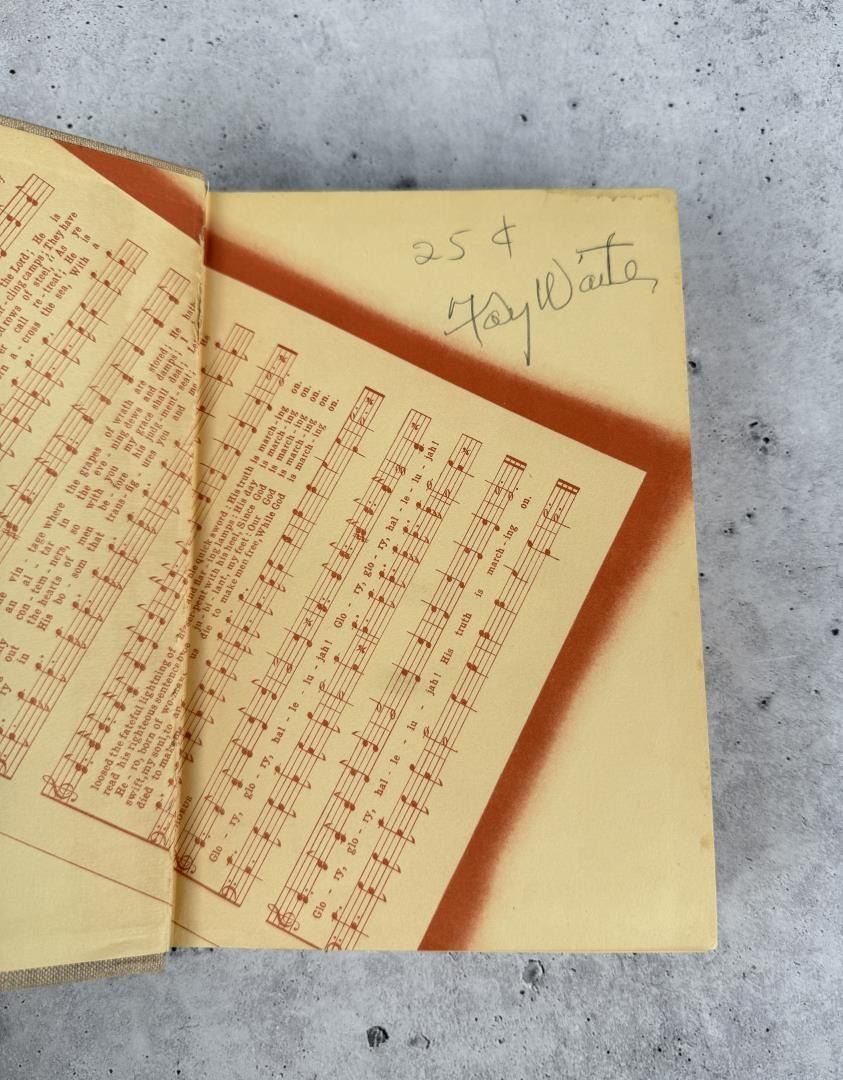 25 ¢
Fay Waite
the Lord; He is
cling camps; They have
rows of steel, "As ye
call re - treat; He is
a - cross the sea, With a
vin - tage where the grapes of wrath are stored; He hath
an al - tar in the eve - ning dews and damps; I
con - tem - ners, so with you my grace shall deal; Let
out the hearts of men be - fore his judg - ment - seat;
in His bo - som that trans - fig - ures you and me
loosed the fateful lightning of
quick sword: His truth is march - ing on.
read his righteous sentence
flar - ing lamps: His day is march - ing on.
He - ro, born of wo
pent with his heel, Since God is march - ing on.
swift, my soul, to
ju - bi - lant, my feet! Our God is march - ing on.
died to make
us die to make men free, While God is march - ing on.
Glo - ry, glo - ry, hal - le - lu - jah! Glo - ry, glo - ry, hal - le - lu - jah!
Glo - ry, glo - ry, hal - le - lu - jah! His truth is march - ing on.